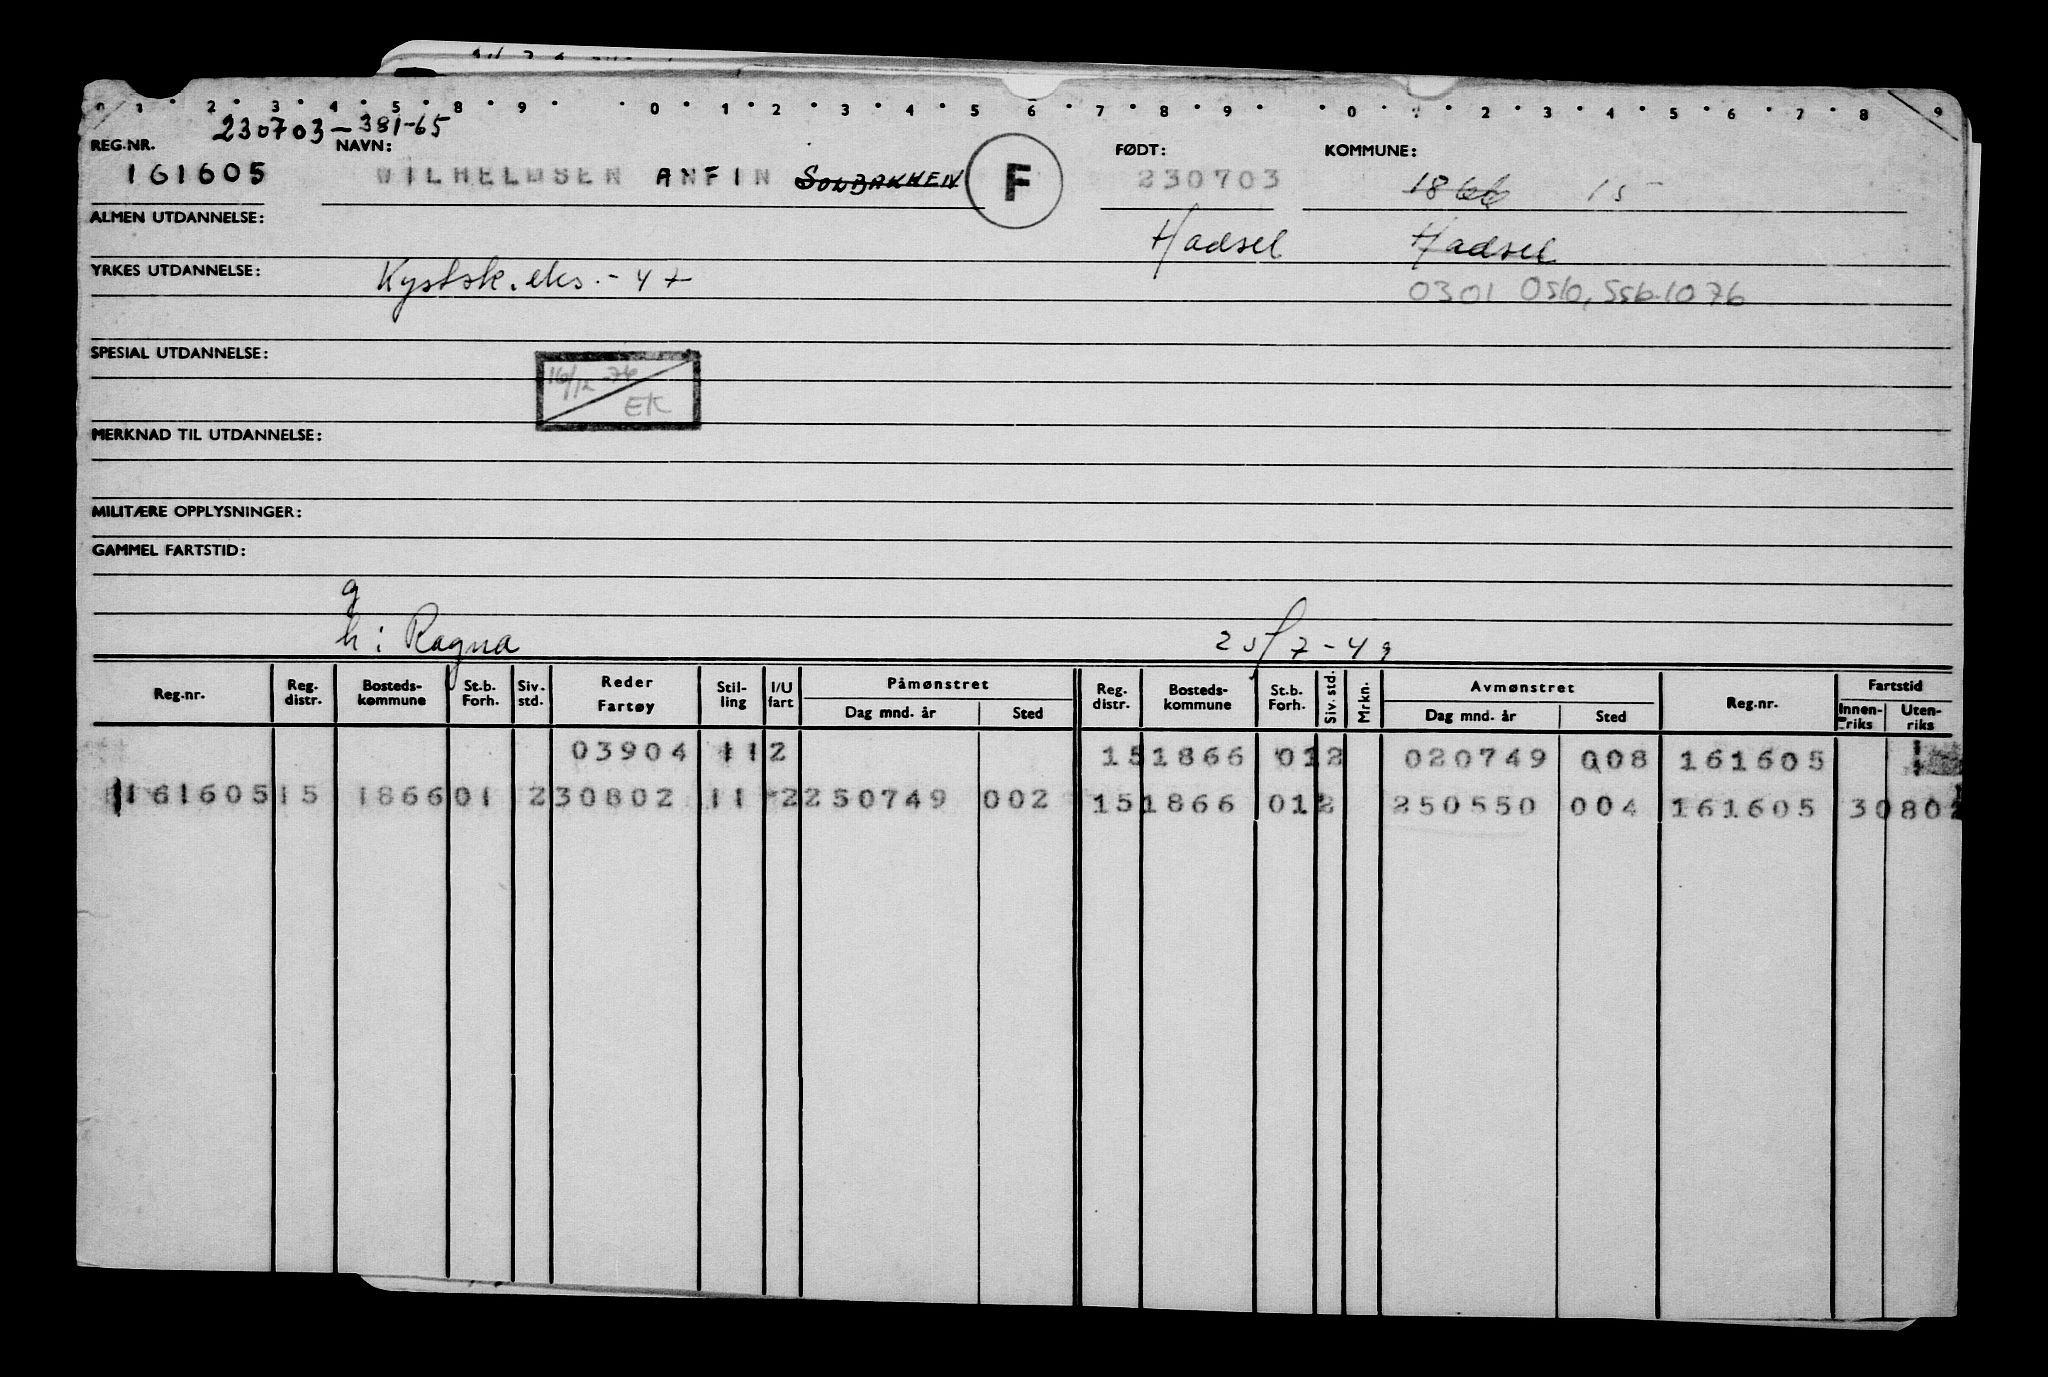 0 1 2 3 4 5 8 9 0 1 2 3 4 5 6 7 8 9 0 1 2 3 4 5 6 7 8 9
230703-381-65
REG.NR. NAVN: FØDT: KOMMUNE:
161605 WILHELMSEN ANFIN SOLBAKKEN F 230703 1866 15
ALMEN UTDANNELSE: Hadsel Hadsel
YRKES UTDANNELSE: Kystsk. eks. - 47
0301 Oslo, Ssb. 1076
SPESIAL UTDANNELSE:
16/12-76
EK
MERKNAD TIL UTDANNELSE:
MILITÆRE OPPLYSNINGER:
GAMMEL FARTSTID:
g
h: Ragna 25/7-49
Reg.nr. Reg. distr. Bosteds- kommune St.b. Forh. Siv. std. Reder Fartøy Stil- ling I/U fart Påmønstret Dag mnd. år Sted Reg. distr. Bosteds- kommune St.b. Forh. Siv. std. Mrkn. Avmønstret Dag mnd. år Sted Reg.nr. Fartstid Innen- riks Uten- riks
03904 112 151866 012 020749 008 161605
161605 15 1866 01 2 30802 11 2 250749 002 151866 012 250550 004 161605 30802